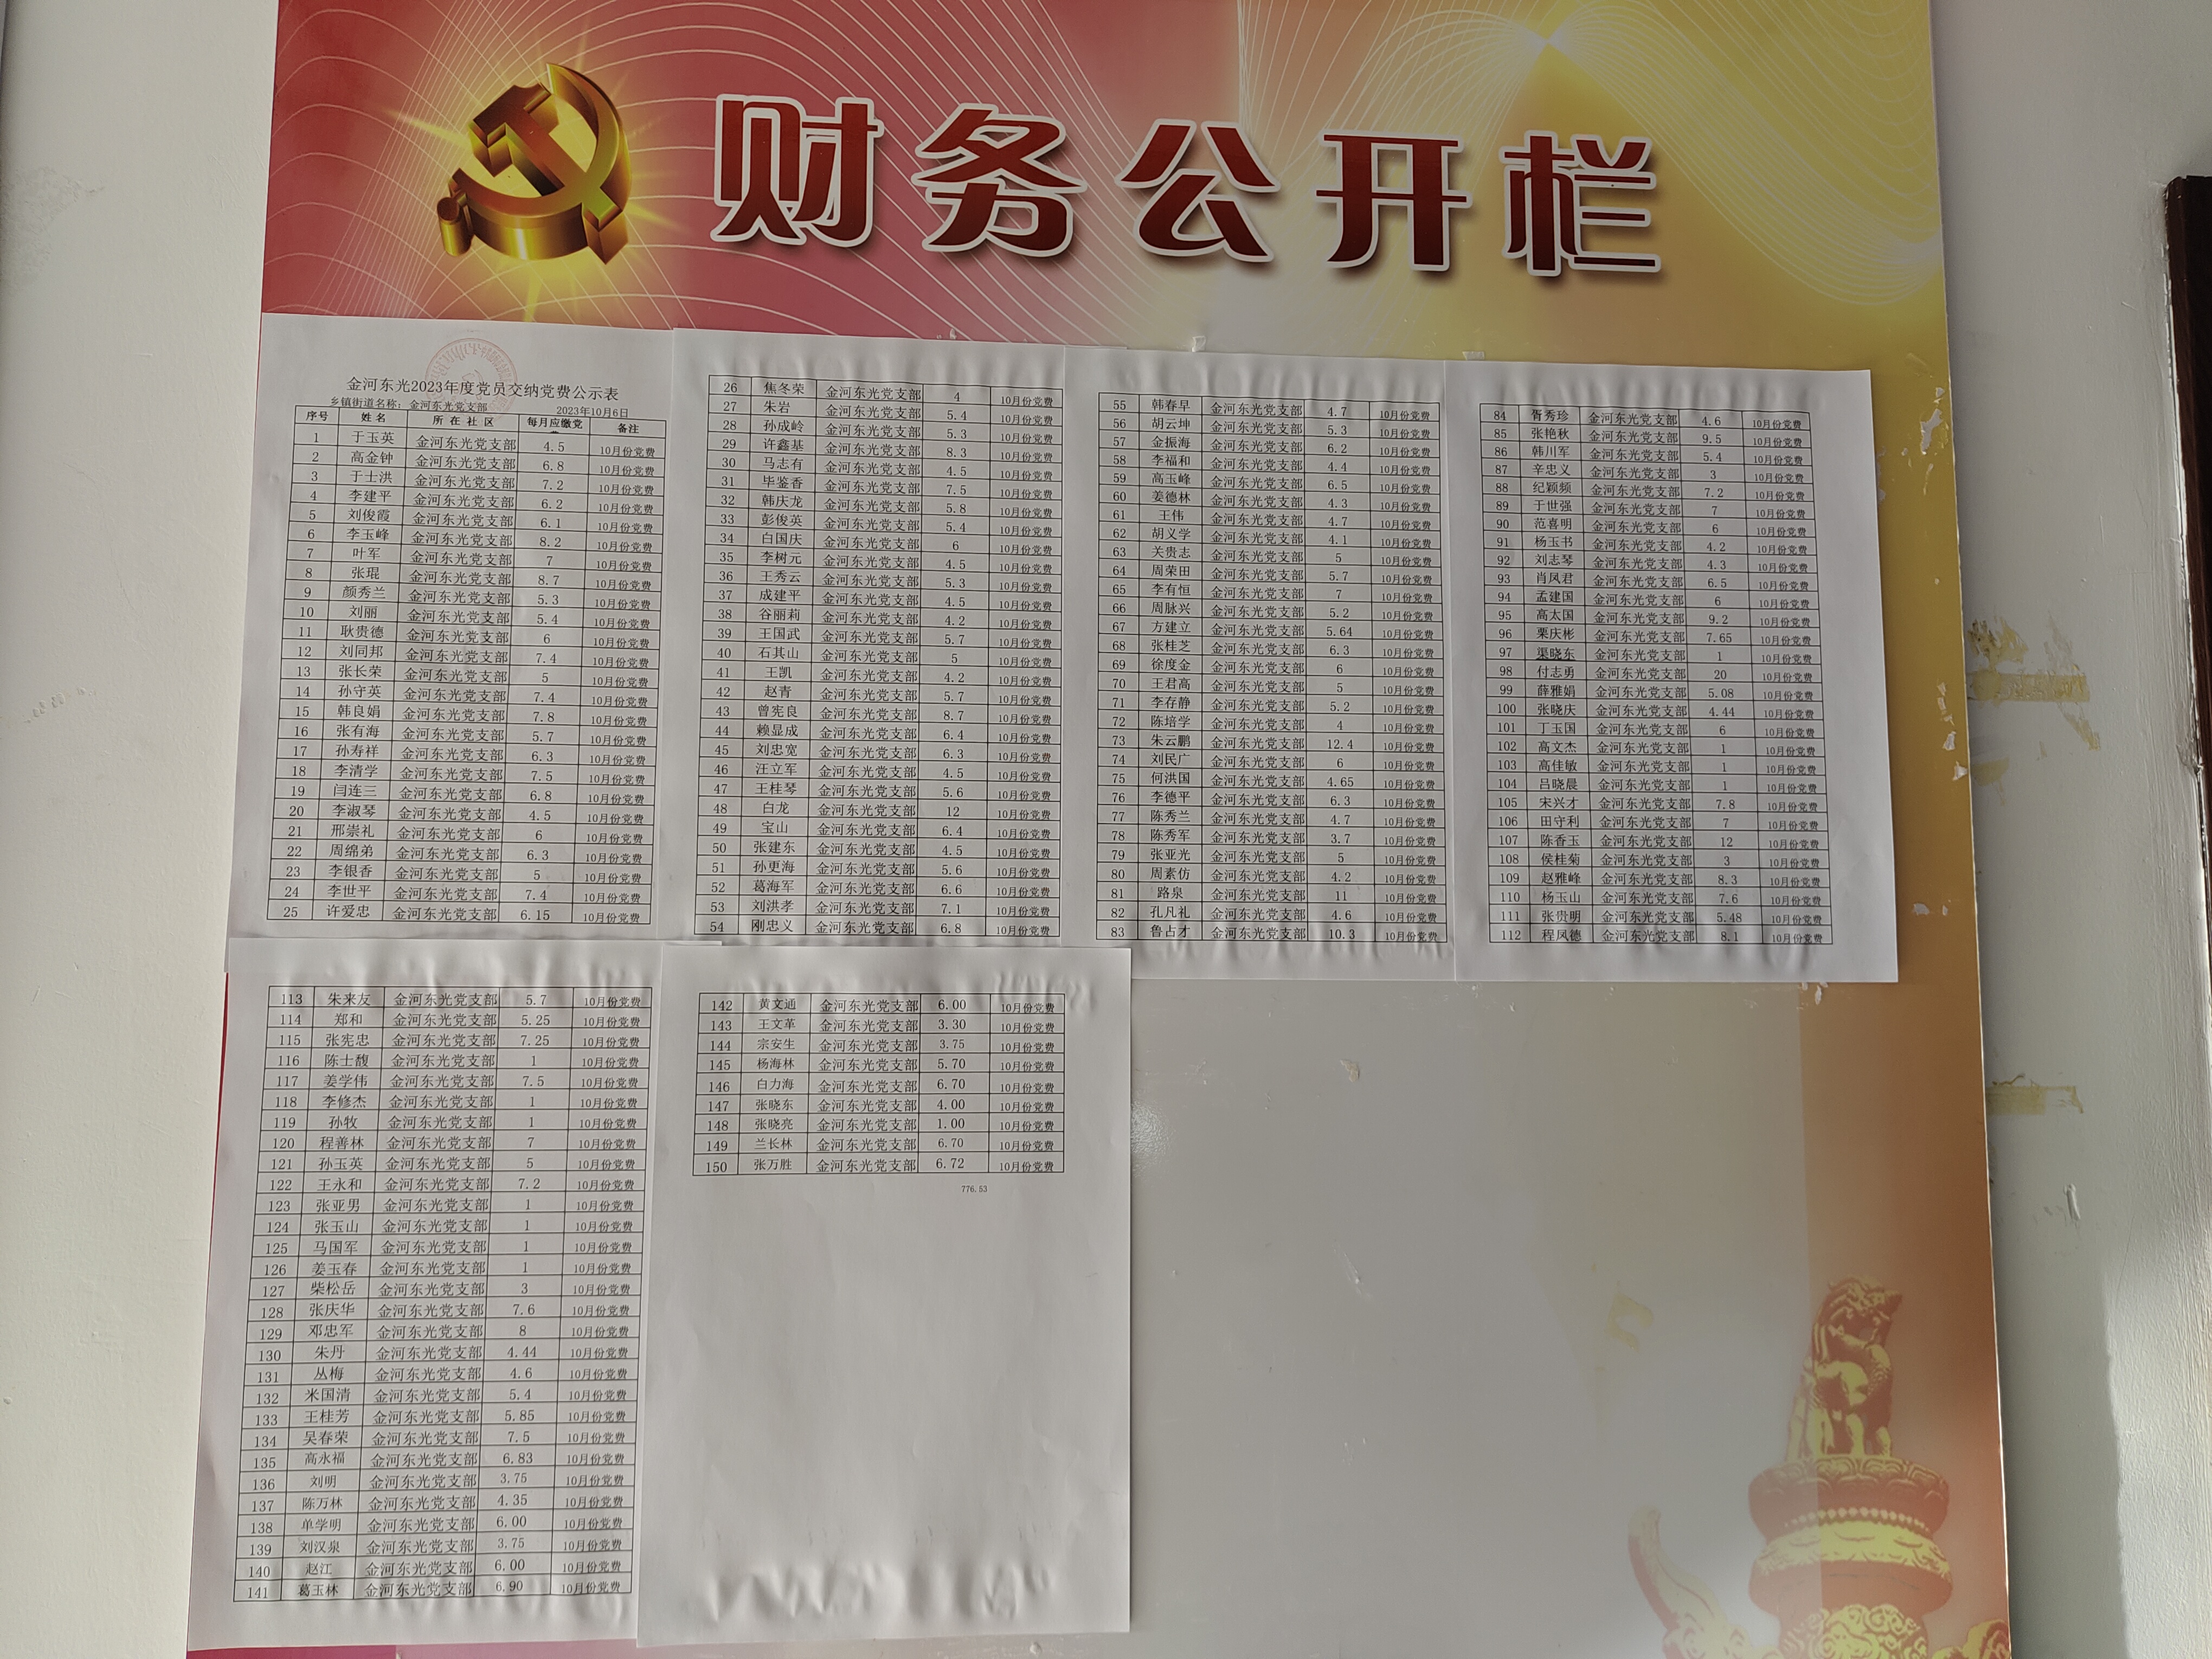 财务公开栏
金河东光2023年度党员交纳党费公示表
乡镇街道名称：金河东光党支部 2023年10月6日
序号 姓名 所在社区 每月应缴党 备注
1 于玉英 金河东光党支部 4.5 10月份党费
2 高金钟 金河东光党支部 6.8 10月份党费
3 于士洪 金河东光党支部 7.2 10月份党费
4 李建平 金河东光党支部 6.2 10月份党费
5 刘俊霞 金河东光党支部 6.1 10月份党费
6 李玉峰 金河东光党支部 8.2 10月份党费
7 叶军 金河东光党支部 7 10月份党费
8 张琨 金河东光党支部 8.7 10月份党费
9 颜秀兰 金河东光党支部 5.3 10月份党费
10 刘丽 金河东光党支部 5.4 10月份党费
11 耿贵德 金河东光党支部 6 10月份党费
12 刘同邦 金河东光党支部 7.4 10月份党费
13 张长荣 金河东光党支部 5 10月份党费
14 孙守英 金河东光党支部 7.4 10月份党费
15 韩良娟 金河东光党支部 7.8 10月份党费
16 张有海 金河东光党支部 5.7 10月份党费
17 孙寿祥 金河东光党支部 6.3 10月份党费
18 李清学 金河东光党支部 7.5 10月份党费
19 闫连三 金河东光党支部 6.8 10月份党费
20 李淑琴 金河东光党支部 4.5 10月份党费
21 邢崇礼 金河东光党支部 6 10月份党费
22 周绵弟 金河东光党支部 6.3 10月份党费
23 李银香 金河东光党支部 5 10月份党费
24 李世平 金河东光党支部 7.4 10月份党费
25 许爱忠 金河东光党支部 6.15 10月份党费
26 焦冬荣 金河东光党支部 4 10月份党费
27 朱岩 金河东光党支部 5.4 10月份党费
28 孙成岭 金河东光党支部 5.3 10月份党费
29 许鑫基 金河东光党支部 8.3 10月份党费
30 马志有 金河东光党支部 4.5 10月份党费
31 毕鉴香 金河东光党支部 7.5 10月份党费
32 韩庆龙 金河东光党支部 5.8 10月份党费
33 彭俊英 金河东光党支部 5.4 10月份党费
34 白国庆 金河东光党支部 6 10月份党费
35 李树元 金河东光党支部 4.5 10月份党费
36 王秀云 金河东光党支部 5.3 10月份党费
37 成建平 金河东光党支部 4.5 10月份党费
38 谷丽莉 金河东光党支部 4.2 10月份党费
39 王国武 金河东光党支部 5.7 10月份党费
40 石其山 金河东光党支部 5 10月份党费
41 王凯 金河东光党支部 4.2 10月份党费
42 赵青 金河东光党支部 5.7 10月份党费
43 曾宪良 金河东光党支部 8.7 10月份党费
44 赖显成 金河东光党支部 6.4 10月份党费
45 刘忠宽 金河东光党支部 6.3 10月份党费
46 汪立军 金河东光党支部 4.5 10月份党费
47 王桂琴 金河东光党支部 5.6 10月份党费
48 白龙 金河东光党支部 12 10月份党费
49 宝山 金河东光党支部 6.4 10月份党费
50 张建东 金河东光党支部 4.5 10月份党费
51 孙更海 金河东光党支部 5.6 10月份党费
52 葛海军 金河东光党支部 6.6 10月份党费
53 刘洪孝 金河东光党支部 7.1 10月份党费
54 刚忠义 金河东光党支部 6.8 10月份党费
55 韩春早 金河东光党支部 4.7 10月份党费
56 胡云坤 金河东光党支部 5.3 10月份党费
57 金振海 金河东光党支部 6.2 10月份党费
58 李福和 金河东光党支部 4.4 10月份党费
59 高玉峰 金河东光党支部 6.5 10月份党费
60 姜德林 金河东光党支部 4.3 10月份党费
61 王伟 金河东光党支部 4.7 10月份党费
62 胡义学 金河东光党支部 4.1 10月份党费
63 关贵志 金河东光党支部 5 10月份党费
64 周荣田 金河东光党支部 5.7 10月份党费
65 李有恒 金河东光党支部 7 10月份党费
66 周脉兴 金河东光党支部 5.2 10月份党费
67 方建立 金河东光党支部 5.64 10月份党费
68 张桂芝 金河东光党支部 6.3 10月份党费
69 徐度金 金河东光党支部 6 10月份党费
70 王君高 金河东光党支部 5 10月份党费
71 李存静 金河东光党支部 5.2 10月份党费
72 陈培学 金河东光党支部 4 10月份党费
73 朱云鹏 金河东光党支部 12.4 10月份党费
74 刘民广 金河东光党支部 6 10月份党费
75 何洪国 金河东光党支部 4.65 10月份党费
76 李德平 金河东光党支部 6.3 10月份党费
77 陈秀兰 金河东光党支部 4.7 10月份党费
78 陈秀军 金河东光党支部 3.7 10月份党费
79 张亚光 金河东光党支部 5 10月份党费
80 周素仿 金河东光党支部 4.2 10月份党费
81 路泉 金河东光党支部 11 10月份党费
82 孔凡礼 金河东光党支部 4.6 10月份党费
83 鲁占才 金河东光党支部 10.3 10月份党费
84 胥秀珍 金河东光党支部 4.6 10月份党费
85 张艳秋 金河东光党支部 9.5 10月份党费
86 韩川军 金河东光党支部 5.4 10月份党费
87 辛忠义 金河东光党支部 3 10月份党费
88 纪颖频 金河东光党支部 7.2 10月份党费
89 于世强 金河东光党支部 7 10月份党费
90 范喜明 金河东光党支部 6 10月份党费
91 杨玉书 金河东光党支部 4.2 10月份党费
92 刘志琴 金河东光党支部 4.3 10月份党费
93 肖凤君 金河东光党支部 6.5 10月份党费
94 孟建国 金河东光党支部 6 10月份党费
95 高太国 金河东光党支部 9.2 10月份党费
96 栗庆彬 金河东光党支部 7.65 10月份党费
97 渠晓东 金河东光党支部 1 10月份党费
98 付志勇 金河东光党支部 20 10月份党费
99 薛雅娟 金河东光党支部 5.08 10月份党费
100 张晓庆 金河东光党支部 4.44 10月份党费
101 丁玉国 金河东光党支部 6 10月份党费
102 高文杰 金河东光党支部 1 10月份党费
103 高佳敏 金河东光党支部 1 10月份党费
104 吕晓晨 金河东光党支部 1 10月份党费
105 宋兴才 金河东光党支部 7.8 10月份党费
106 田守利 金河东光党支部 7 10月份党费
107 陈香玉 金河东光党支部 12 10月份党费
108 侯桂菊 金河东光党支部 3 10月份党费
109 赵雅峰 金河东光党支部 8.3 10月份党费
110 杨玉山 金河东光党支部 7.6 10月份党费
111 张贵明 金河东光党支部 5.48 10月份党费
112 程凤德 金河东光党支部 8.1 10月份党费
113 朱来友 金河东光党支部 5.7 10月份党费
114 郑和 金河东光党支部 5.25 10月份党费
115 张宪忠 金河东光党支部 7.25 10月份党费
116 陈士馥 金河东光党支部 1 10月份党费
117 姜学伟 金河东光党支部 7.5 10月份党费
118 李修杰 金河东光党支部 1 10月份党费
119 孙牧 金河东光党支部 1 10月份党费
120 程善林 金河东光党支部 7 10月份党费
121 孙玉英 金河东光党支部 5 10月份党费
122 王永和 金河东光党支部 7.2 10月份党费
123 张亚男 金河东光党支部 1 10月份党费
124 张玉山 金河东光党支部 1 10月份党费
125 马国军 金河东光党支部 1 10月份党费
126 姜玉春 金河东光党支部 1 10月份党费
127 柴松岳 金河东光党支部 3 10月份党费
128 张庆华 金河东光党支部 7.6 10月份党费
129 邓忠军 金河东光党支部 8 10月份党费
130 朱丹 金河东光党支部 4.44 10月份党费
131 丛梅 金河东光党支部 4.6 10月份党费
132 米国清 金河东光党支部 5.4 10月份党费
133 王桂芳 金河东光党支部 5.85 10月份党费
134 吴春荣 金河东光党支部 7.5 10月份党费
135 高永福 金河东光党支部 6.83 10月份党费
136 刘明 金河东光党支部 3.75 10月份党费
137 陈万林 金河东光党支部 4.35 10月份党费
138 单学明 金河东光党支部 6.00 10月份党费
139 刘汉泉 金河东光党支部 3.75 10月份党费
140 赵江 金河东光党支部 6.00 10月份党费
141 葛玉林 金河东光党支部 6.90 10月份党费
142 黄文通 金河东光党支部 6.00 10月份党费
143 王文革 金河东光党支部 3.30 10月份党费
144 宗安生 金河东光党支部 3.75 10月份党费
145 杨海林 金河东光党支部 5.70 10月份党费
146 白力海 金河东光党支部 6.70 10月份党费
147 张晓东 金河东光党支部 4.00 10月份党费
148 张晓亮 金河东光党支部 1.00 10月份党费
149 兰长林 金河东光党支部 6.70 10月份党费
150 张万胜 金河东光党支部 6.72 10月份党费
776.53